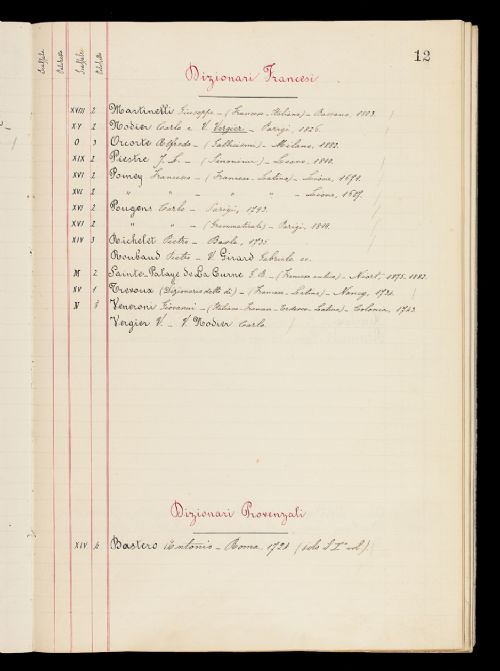 12
Scaffale Palchetto Scaffale Palchetto
Dizionari Francesi
XVIII 2 Martinelli Giuseppe - (Francese-Italiano) - Bassano, 1803.
XV 2 Nodier Carlo e V. Verger - Parigi, 1826.
O 3 Orcorte Alfredo - Milano, 1882.
XIX 2 Piestre J. L. - (Sinonimi) - Lione, 1810.
XVI 2 Pomey Francesco - (Francese-Latino) - Lione, 1671.
XVI 2 " " - " " - Lione,
XVI 2 Pougens Carlo - Parigi, 1793.
XVI 2 " " - (Grammaticale) - Parigi,
XIV 3 Richelet Pietro - Basilea, 1735.
Roubaud Pietro - V. Girard Gabriele ec.
M 2 Sainte-Palaye de La Curne G. B. - (Francese antico) - Niort, 1875-1882.
XV 1 Trevoux (Dizionario detto di) - (Francese-Latino) - Nancy,
N 3 Veneroni Giovanni - (Italiano-Francese-Tedesco-Latino) - Colonia, 1743
Vergier V. - V. Nodier Carlo.
Dizionari Provenzali
XIV 6 Bastero Antonio - Roma, 1724 (solo il I° vol.)